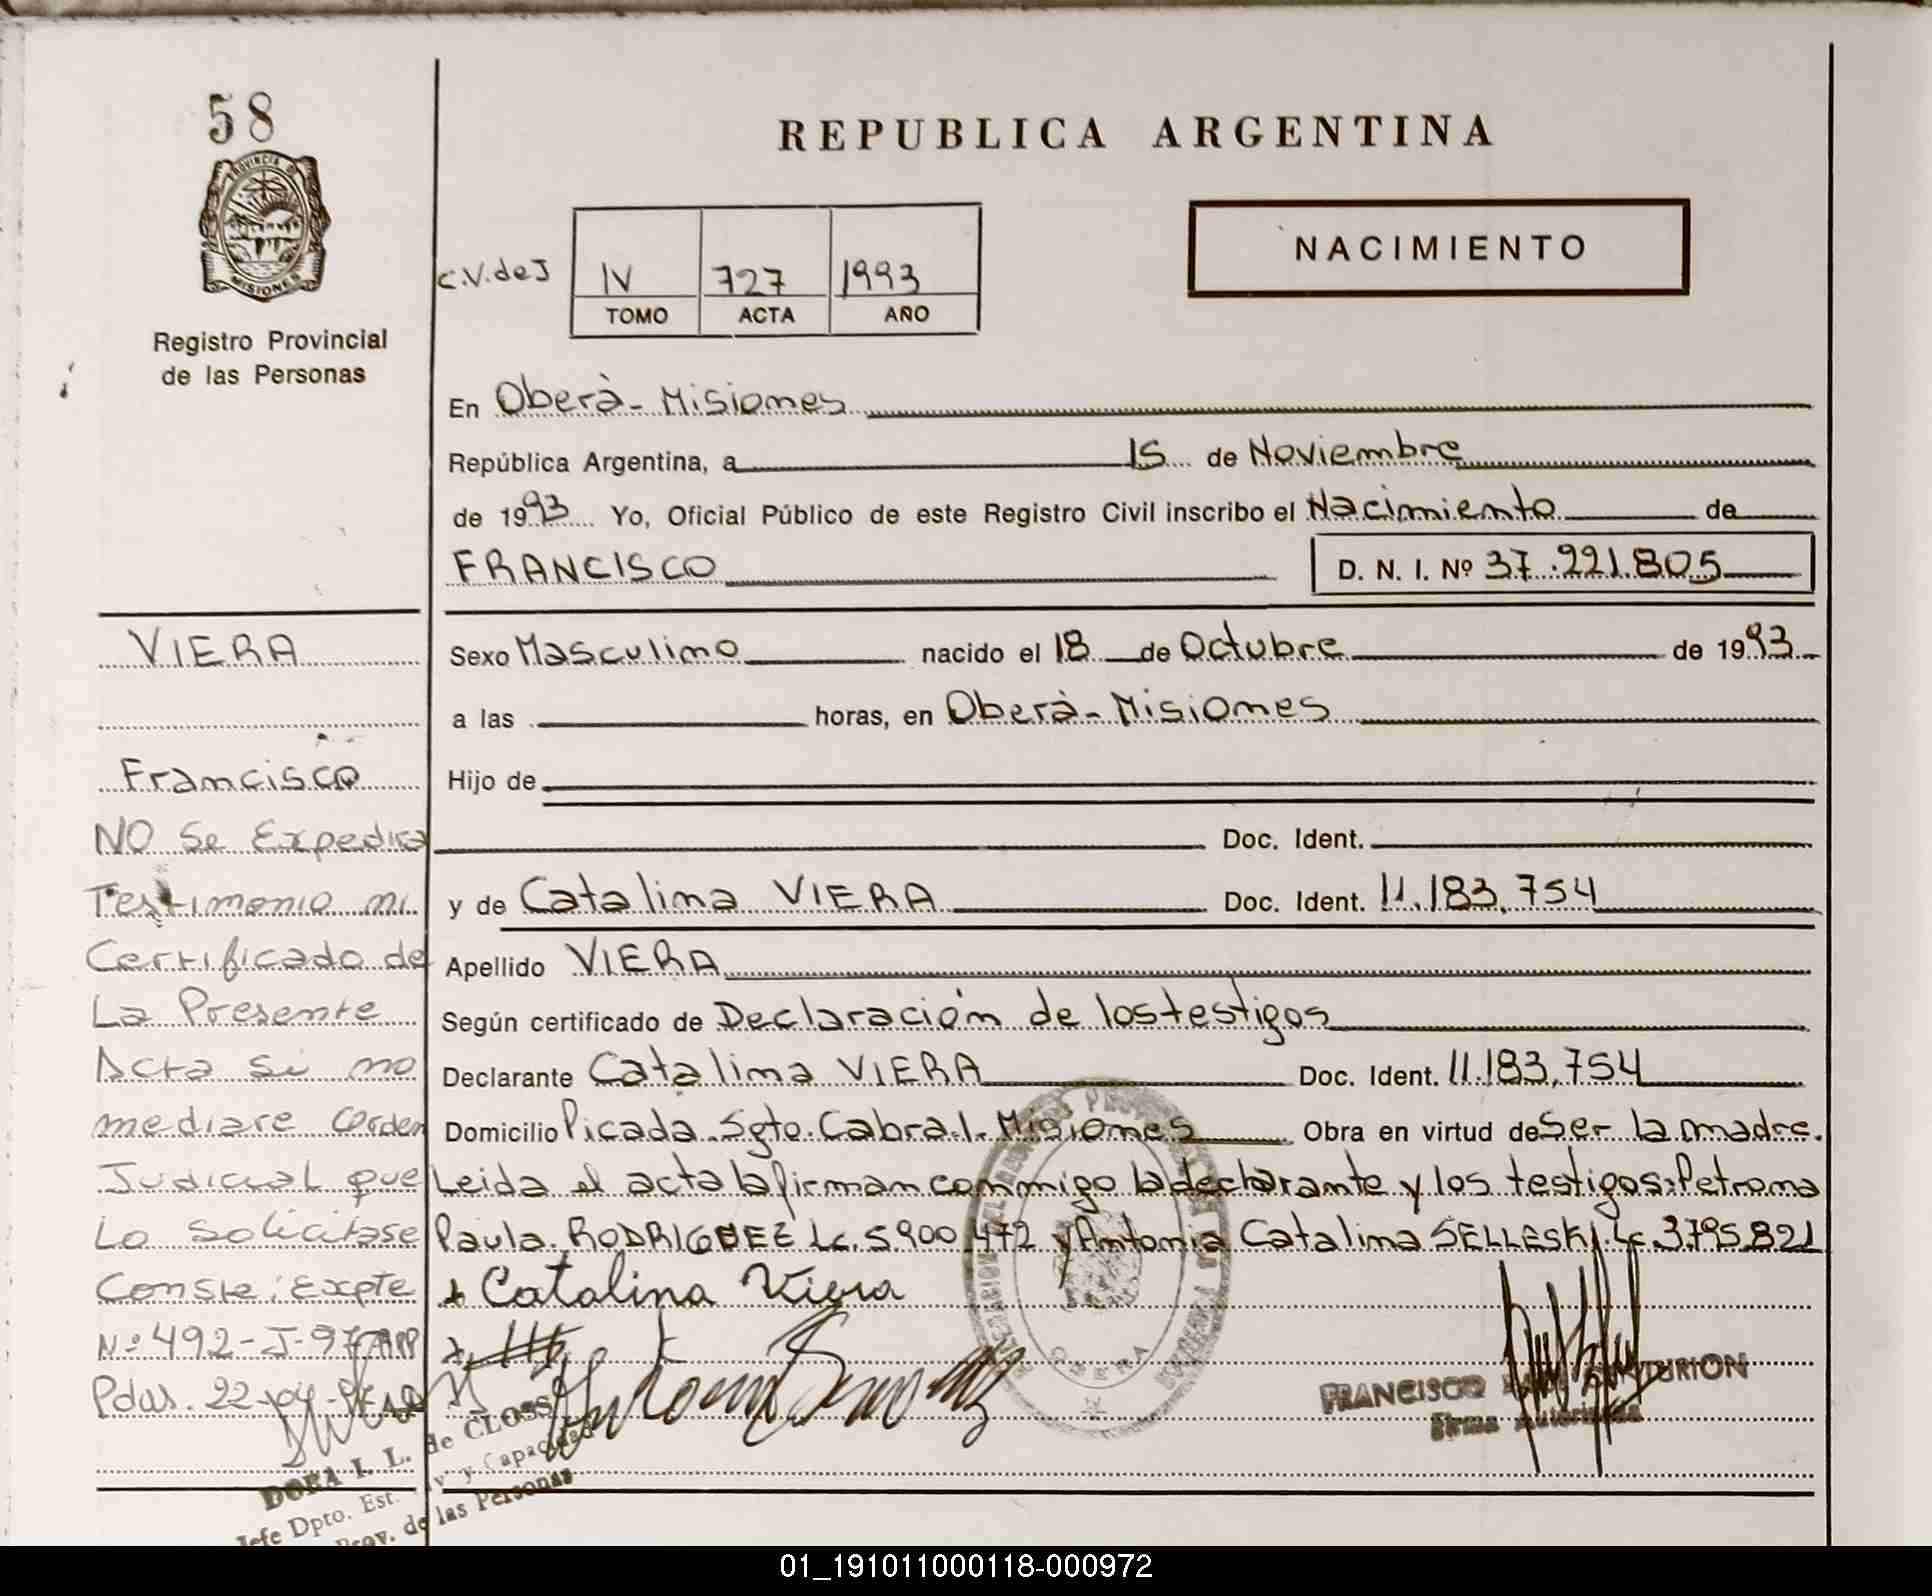 58
PROVINCIA DE
MISIONES
Registro Provincial
de las Personas
REPUBLICA ARGENTINA
NACIMIENTO
C.V.deJ IV 727 1993
TOMO ACTA AÑO
En Oberà - Misiones
República Argentina, a 15 de Noviembre
de 1993 Yo, Oficial Público de este Registro Civil inscribo el Nacimiento de
FRANCISCO D. N. I. Nº 37.221.805
Sexo Masculino nacido el 18 de Octubre de 1993
a las horas, en Oberà - Misiones
Hijo de
Doc. Ident.
y de Catalina VIERA Doc. Ident. 11.183.754
Apellido VIERA
Según certificado de Declaración de los testigos
Declarante Catalina VIERA Doc. Ident. 11.183.754
Domicilio Picada Sgto. Cabral - Misiones Obra en virtud de Ser la madre.
Leida el acta la firman conmigo la declarante y los testigos: Petrona
Paula RODRIGUEZ Lc. 5.900.472 y Antonia Catalina SELLESKI Lc. 3.795.821
Catalina Viera
FRANCISCO
Firma Autorizada
OBERA
VIERA
Francisco
NO Se Expedira
Testimonio ni
Certificado de
La Presente
Acta Si no
mediare Orden
Judicial que
Lo Solicitase
Conste: Expte
Nº 492-J-97
Pdas. 22-04-
DORA I. L. de CLOSS
Jefe Dpto. Est. Civ. y Capacidad
Prov. de las Personas
01_191011000118-000972